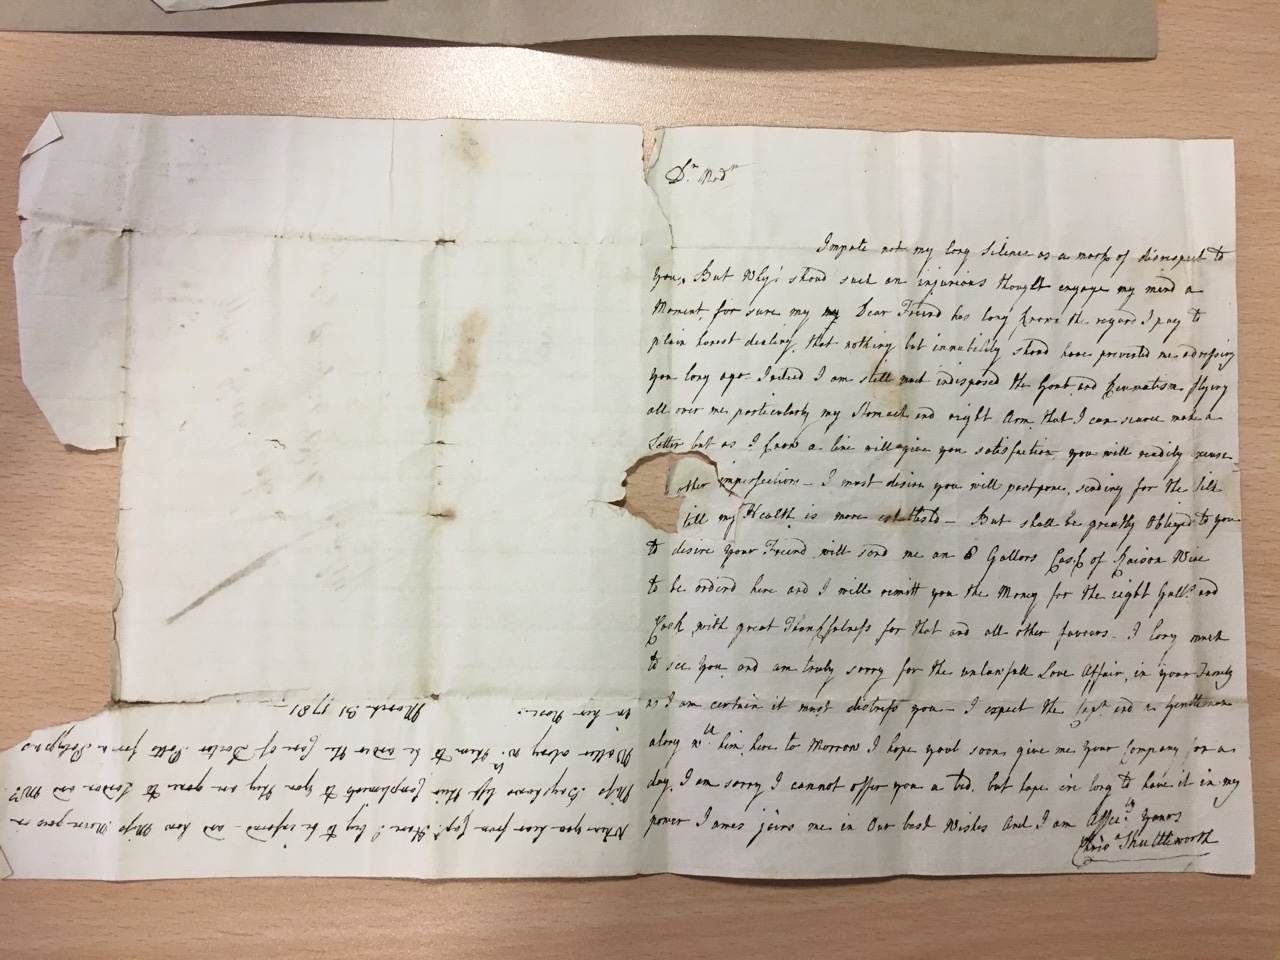 Dr. Madm
Impute not my long Silence as a mark of disrespect to
You, But Why! shoud such an injurious thought engage my mind a
Moment, for sure my my Dear Freind has long known the regard I pay to
plain honest dealing, that nothing but innability shoud have prevented me adressing
You long ago Indeed I am still much indisposed the Gout and Reumatism flying
all over me particularly my Stomach and right Arm, that I can scarce make a
Letter but as I know a line will give you satisfaction you will readily excuse
ther imperfections - I must desire you will postpone, sending for the Silk
till my Health is more establishd - But shall be greatly Obleged to you
to desire your Freind will send me an 8 Gallons Cask of Raison Wine
to be orderd here and I will remitt you the Money for the eight Galls. and
Cask, with great Thankfulness for that and all other favours - I long much
to see You, and am truly sorry for the unlawfull Love Affair, in your Family
as I am certain it must distress you - I expect the Capt. and a Gentleman
along wth him, here to Morrow, I hope youl soon give me Your Company for a
day, I am sorry I cannot offer you a bed, but hope ere long to have it in my
power James joins me in Our best Wishes And I am Affectly Yours
Chrisa Shuttleworth
When you hear from Capt. I beg to be informd - and how Miss goes on
Miss left their Compliments to you they are gone to London and Mrs.
Waller along wth them to be under the Care of Doctor Potts for a Polypus
in her Nose -
March 31 1781 -